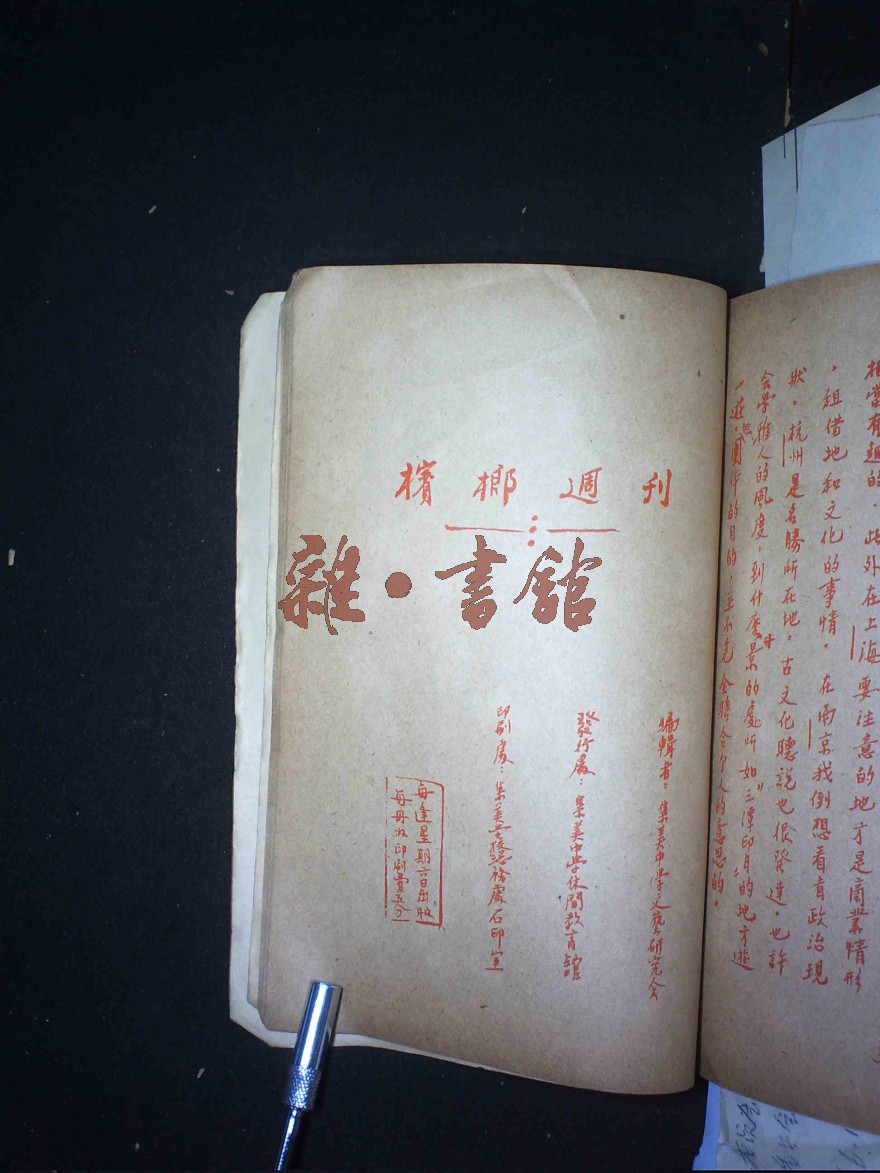 相當有趣的，此外在上海要注意的地方是商業情形
，租借地和文化的事情。在南京我倒想看看政治現
狀。杭州是名勝所在地，古文化聽說也很發達，也許
会學雅人的風度，到什麼景的處所如“三潭印月”的地方遊
一遊，
的目的，並不完全
人的意思的。
檳榔週刊
雜·書館
編輯者：集美中學文藝研究会
發行處：集美中學休閒教育館
印刷處：集美學校總務處石印室
每逢星期六日出版
每册收印刷費五分